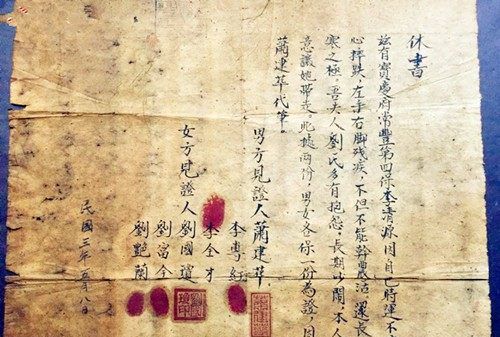 休書
茲有寶慶府常豐第四保李清源因自己時運不
心摔跌，左手右脚残疾，下但不能幹農活，還長
寒之極。吾夫人劉氏多有抱怨，長期吵鬧，本人
意議她帶走。此據兩份，男女各保一份為證，因
蕭建華代筆。
男方見證人蕭建華
李粵红
李全才
女方見證人劉國煊
劉富今
劉艷蘭
民國三年五月八日